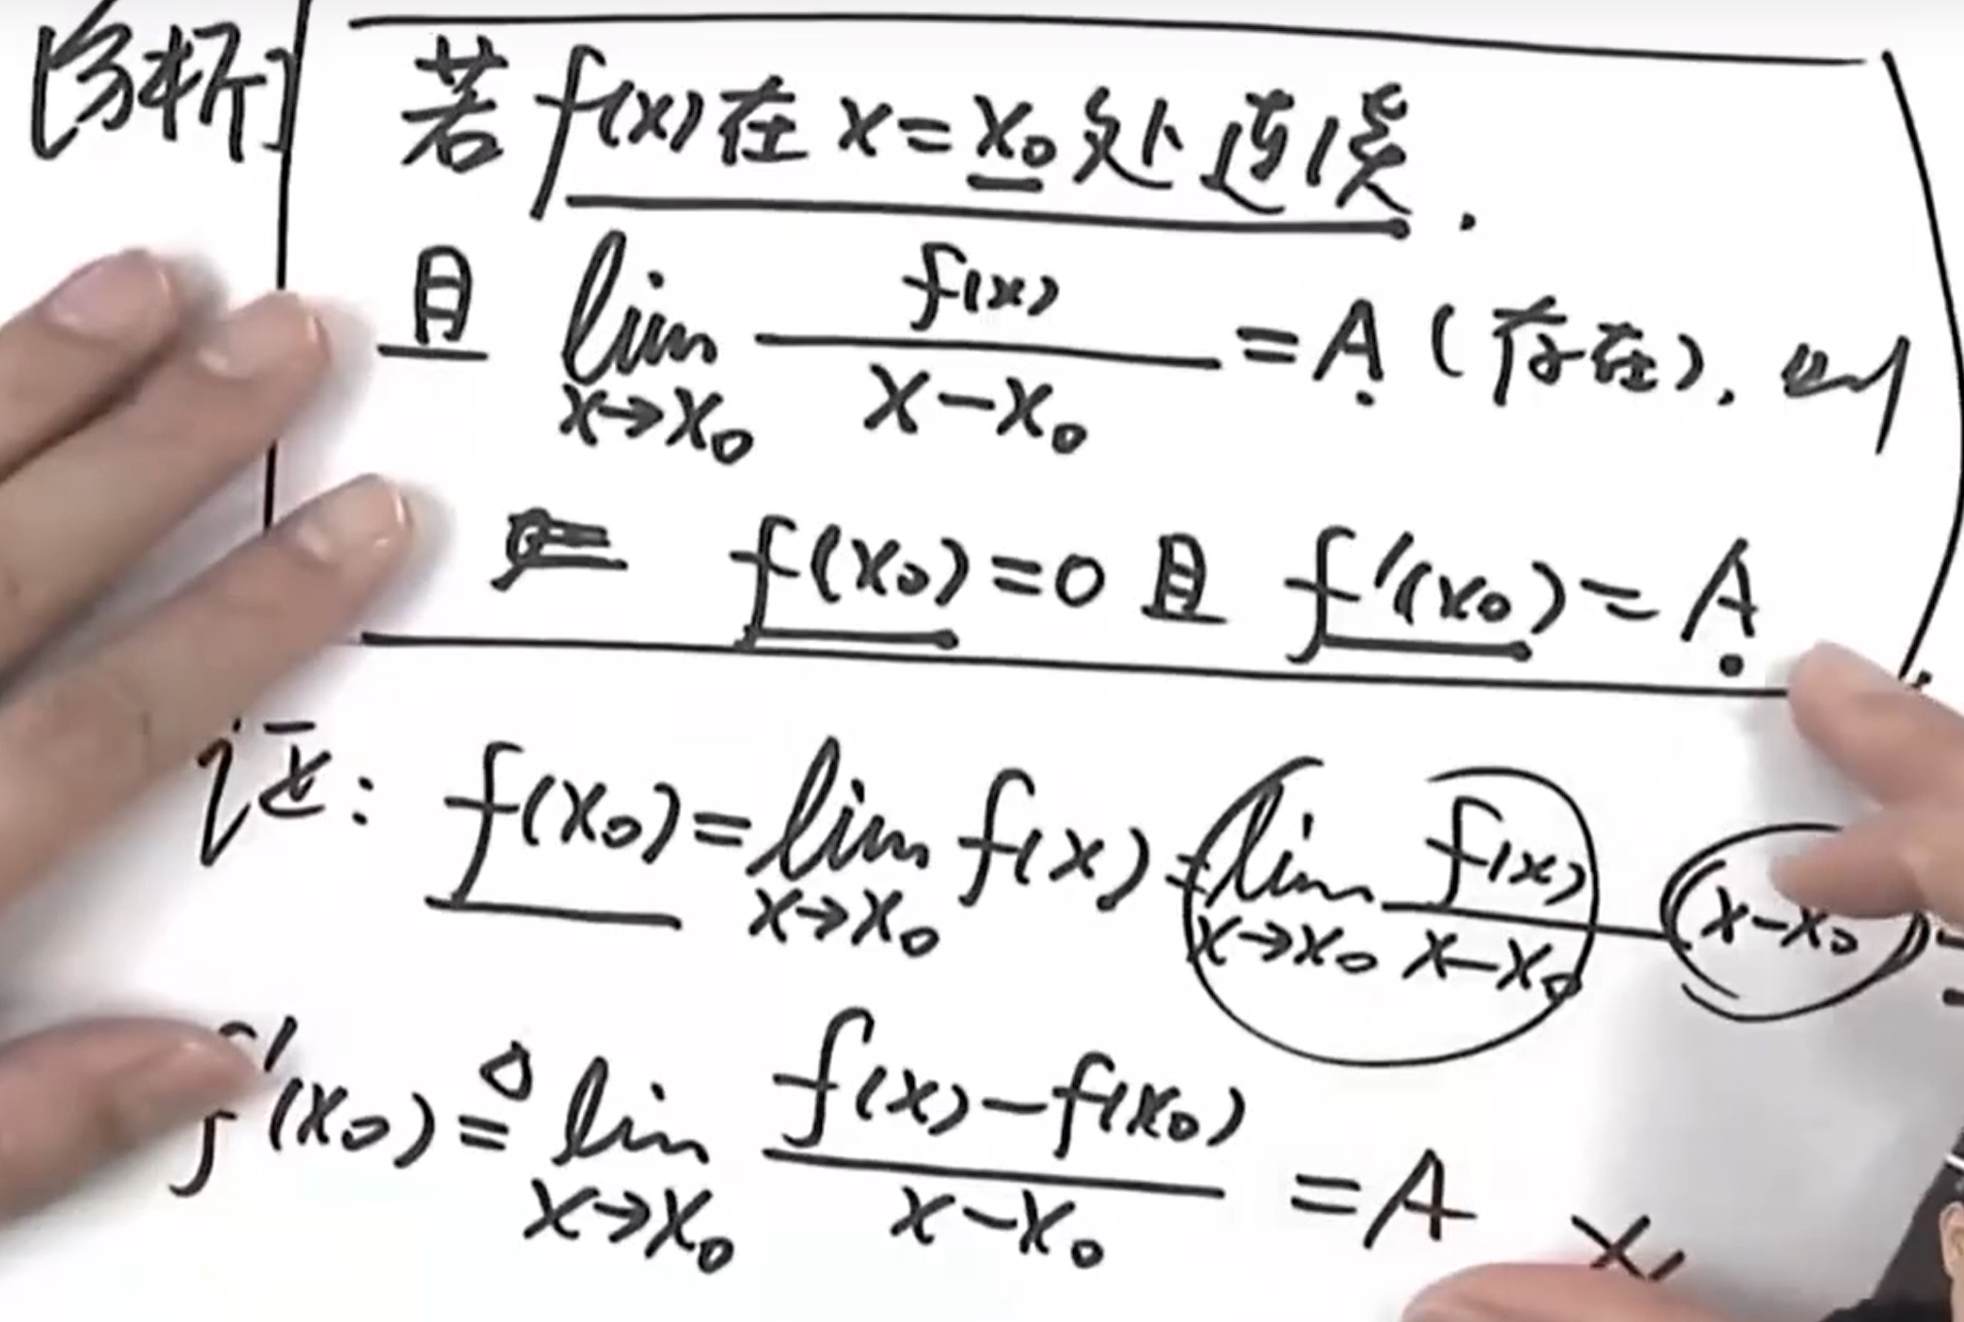 [分析]
若 f(x) 在 x = x₀ 处连续.
且 lim_{x→x₀} f(x)/(x-x₀) = A (存在), 则
f(x₀) = 0 且 f'(x₀) = A
证: f(x₀) = lim_{x→x₀} f(x) = lim_{x→x₀} f(x)/(x-x₀) (x-x₀)
f'(x₀) ≜ lim_{x→x₀} (f(x)-f(x₀))/(x-x₀) = A